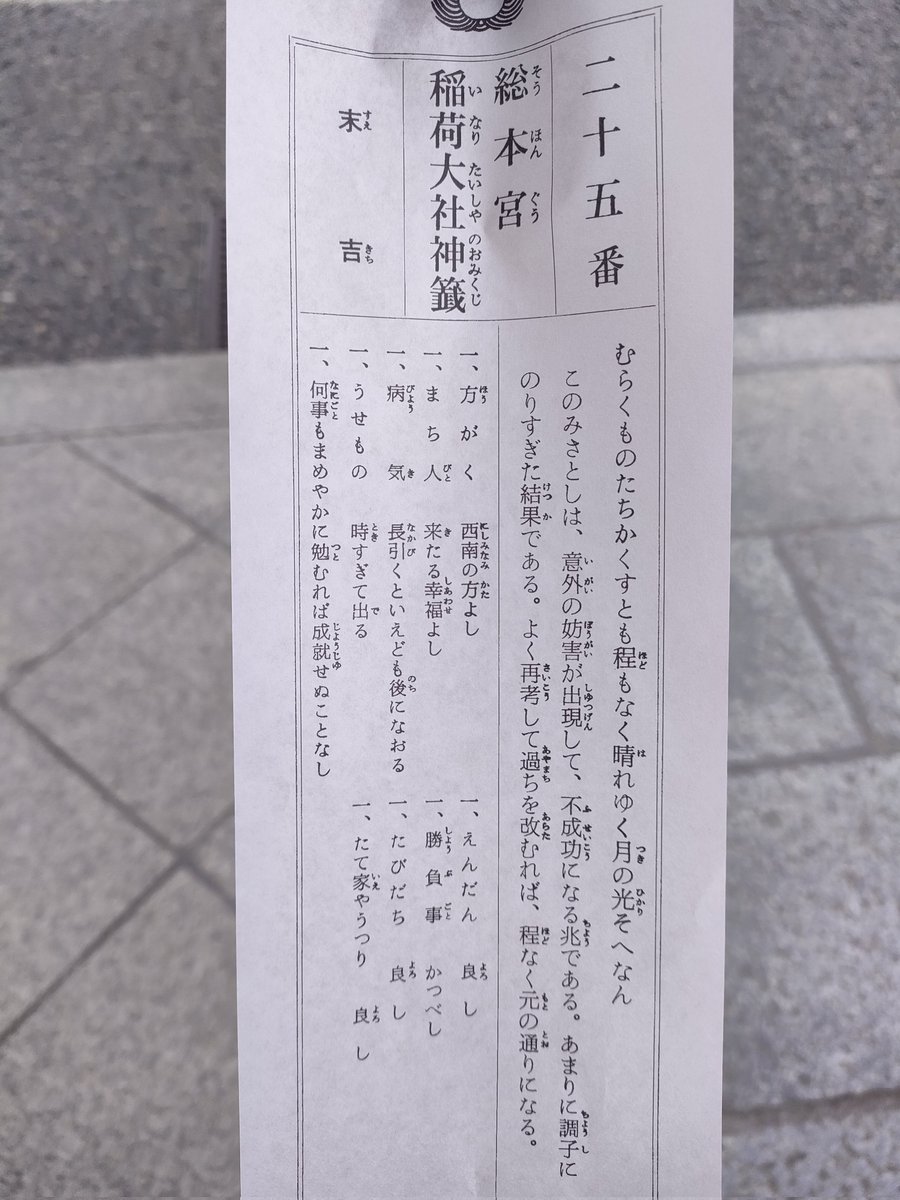 二十五番
総本宮
稲荷大社神籤
末吉
むらくものたちかくすとも程もなく晴れゆく月の光そへなん
このみさとしは、意外の妨害が出現して、不成功になる兆である。あまりに調子に
のりすぎた結果である。よく再考して過ちを改むれば、程なく元の通りになる。
一、方がく 西南の方よし
一、まち人 来たる幸福よし
一、病気 長引くといえども後になおる
一、うせもの 時すぎて出る
一、何事もまめやかに勉むれば成就せぬことなし
一、えんだん 良し
一、勝負事 かつべし
一、たびだち 良し
一、たて家やうつり 良し